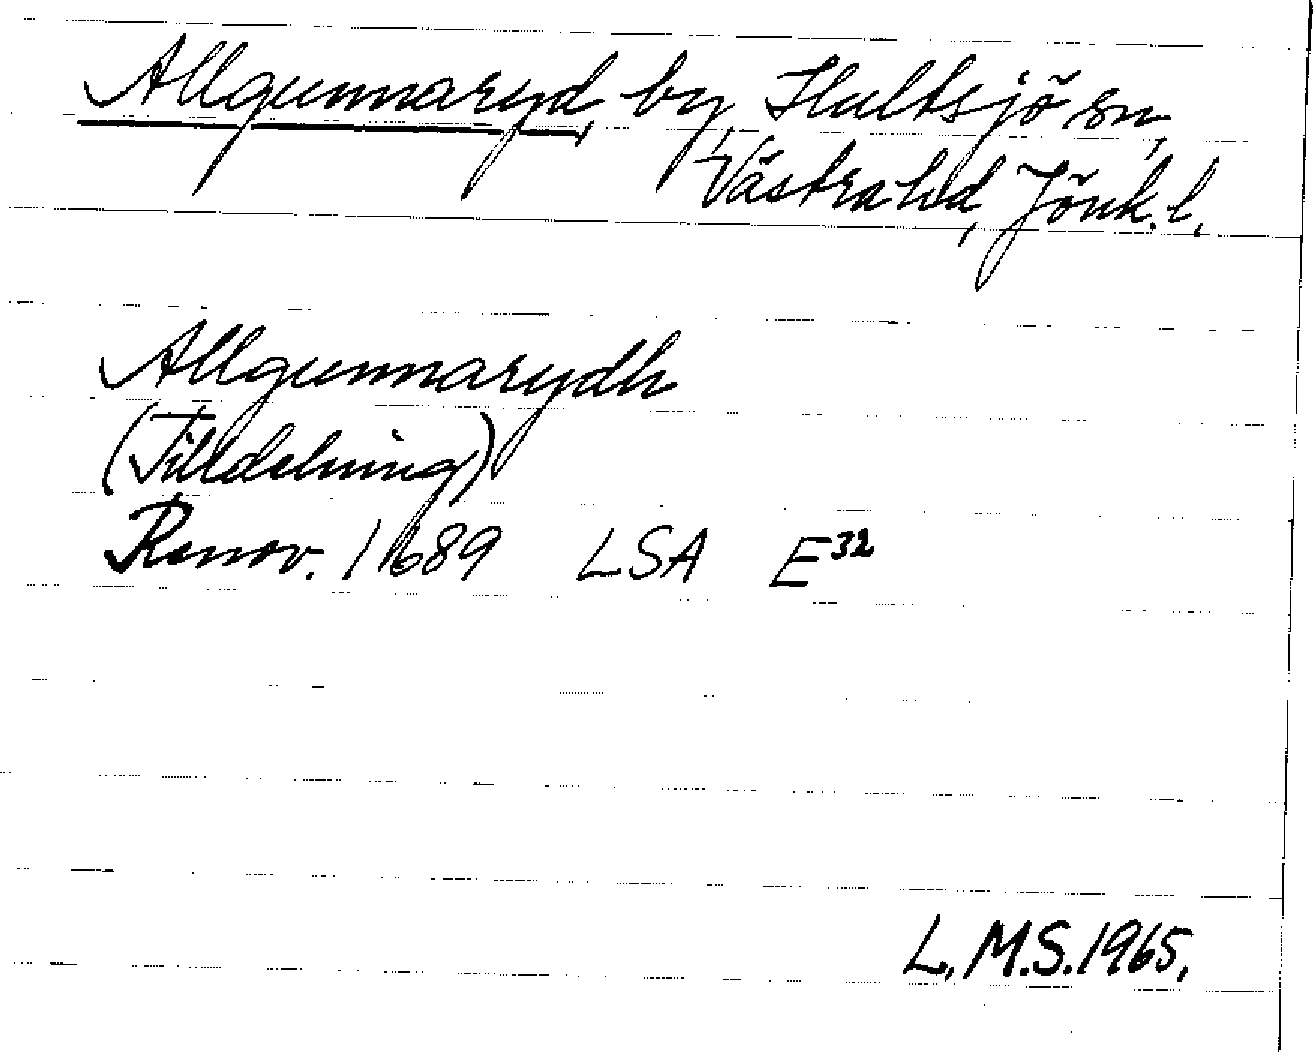 Allgunnaryd, by, Hultsjö sn,
Västra hd, Jönk. l.
Allgunnarydh
(Tilldelning)
Renov. 1689 LSA E32
L.M.S. 1965.